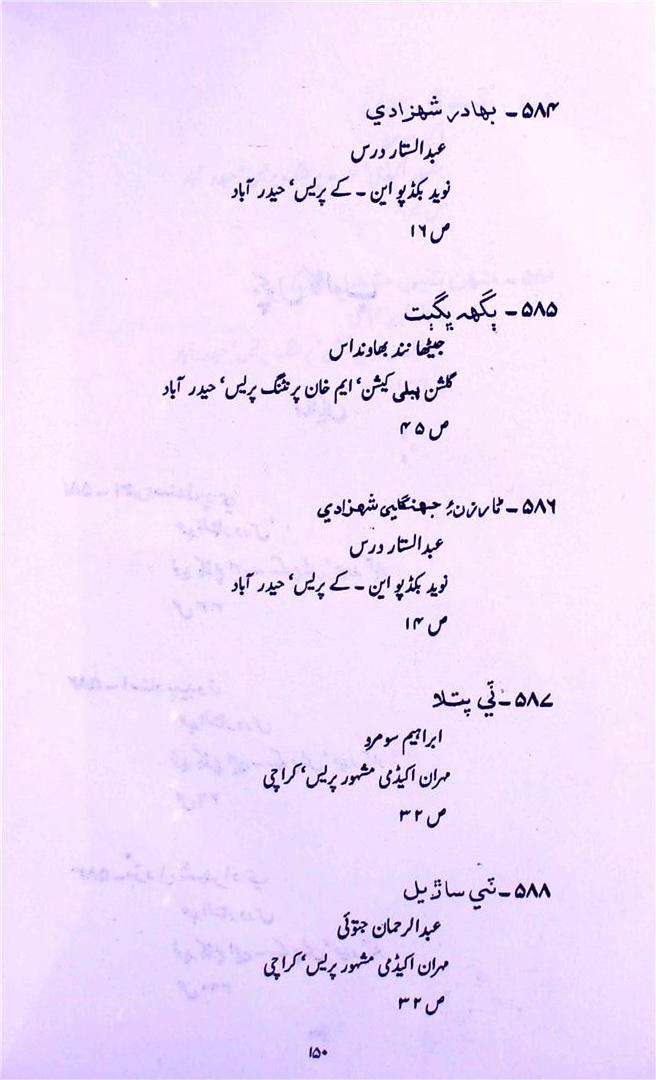 ۵۸۴ - بهادر شهزادي
عبدالستار درس
نوید بکڈپو این ۔ کے پریس، حیدر آباد
ص ۱۶
۵۸۵ - ڀڳهہ ڀڳت
جیٹھا نند بھاونداس
گلشن پبلی کیشن، ایم خان پرنٹنگ پریس، حیدر آباد
ص ۴۵
۵۸۶ - ٽارزن ۽ جهنگلي شهزادي
عبدالستار درس
نوید بکڈپو این ۔ کے پریس، حیدر آباد
ص ۱۴
۵۸۷ - ٽي پتلا
ابراہیم سومرو
مہران اکیڈمی مشہور پریس، کراچی
ص ۳۲
۵۸۸ - ٽي ساڙيل
عبدالرحمان جتوئی
مہران اکیڈمی مشہور پریس، کراچی
ص ۳۲
۱۵۰